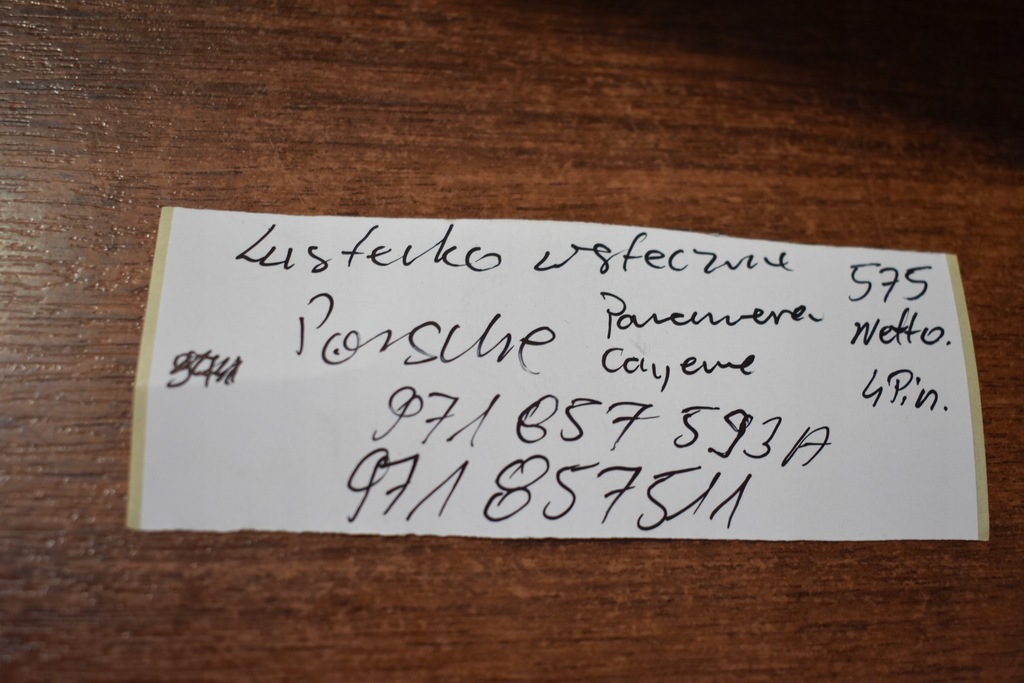 Lusterko wsteczne
Porsche
Panamera
Cayenne
971 857 593A
971 857511
575
Netto.
4Pin.